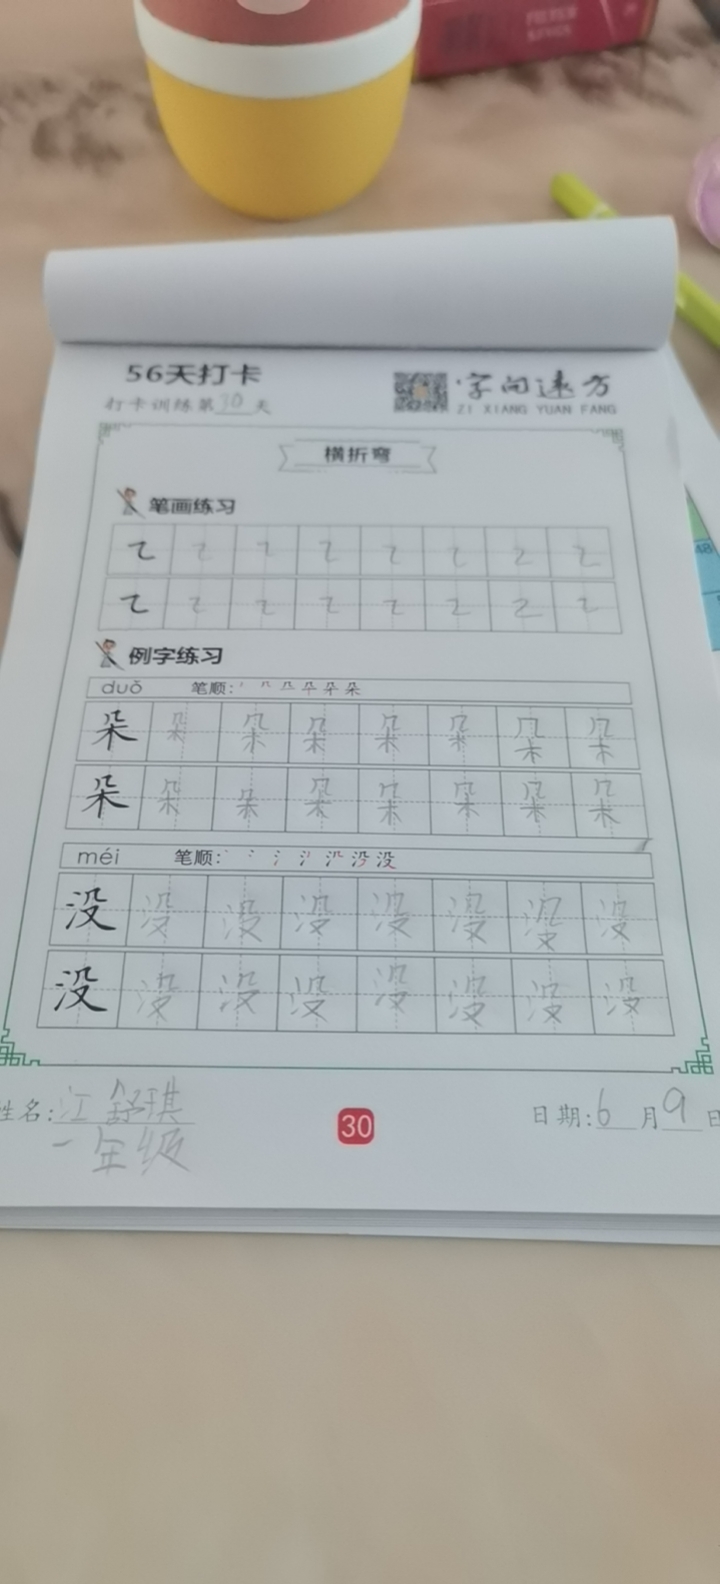 56天打卡
打卡训练第30天
字向远方
ZI XIANG YUAN FANG
横折弯
笔画练习
例字练习
duǒ 笔顺:
朵 朵 朵 朵 朵 朵 朵 朵
朵 朵 朵 朵 朵 朵 朵 朵
méi 笔顺:
没 没 没 没 没 没 没 没
没 没 没 没 没 没 没 没
姓名:江舒琪
一年级
30
日期:6月9日